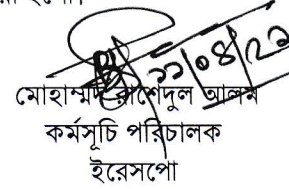 ১১/০৪/২১
মোহাম্মদ রাশেদুল আলম
কর্মসূচি পরিচালক
ইরেসপো